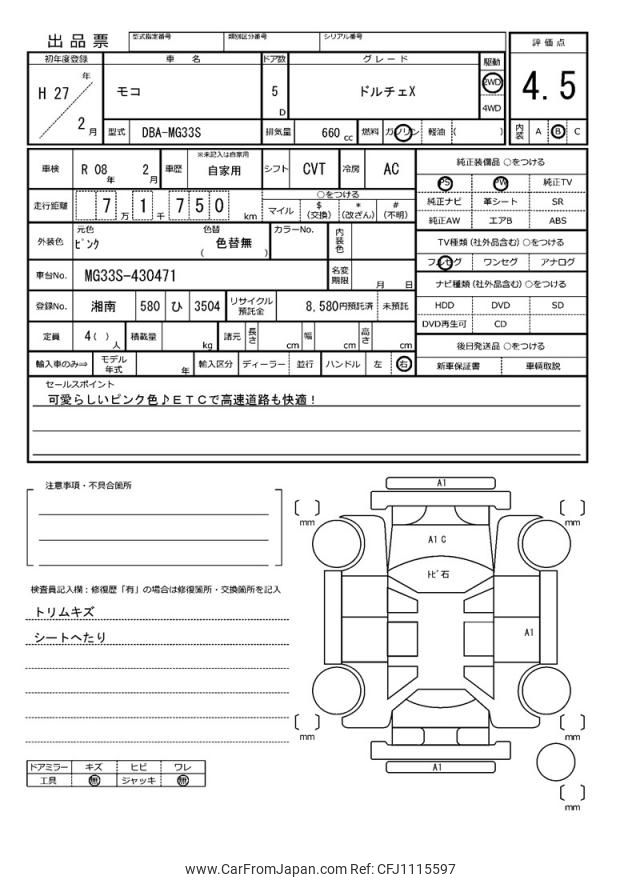 出品票
型式指定番号 類別区分番号 シリアル番号
評価点
4.5
内装 A B C
初年度登録 車名 ドア数 グレード 駆動
H 27 年 2 月
モコ 5 D ドルチェX 2WD 4WD
型式 DBA-MG33S 排気量 660 cc 燃料 ガソリン 軽油 ( )
車検 R 08 年 2 月 車歴 ※未記入は自家用 自家用 シフト CVT 冷房 AC
走行距離 7 万 1 千 7 5 0 km
○をつける
マイル $(交換) *(改ざん) #(不明)
外装色 元色 ピンク 色替 色替無 ( ) カラーNo. 内装色
車台No. MG33S-430471 名変期限 月 日
登録No. 湘南 580 ひ 3504 リサイクル預託金 8,580円預託済 未預託
定員 4( ) 人 積載量 kg 諸元 長さ cm 幅 cm 高さ cm
輸入車のみ⇒ モデル年式 年 輸入区分 ディーラー 並行 ハンドル 左 右
純正装備品 ○をつける
PS PW 純正TV
純正ナビ 革シート SR
純正AW エアB ABS
TV種類 (社外品含む) ○をつける
フルセグ ワンセグ アナログ
ナビ種類 (社外品含む) ○をつける
HDD DVD SD
DVD再生可 CD
後日発送品 ○をつける
新車保証書 車輌取説
セールスポイント
可愛らしいピンク色♪ETCで高速道路も快適!
注意事項・不具合箇所
検査員記入欄:修復歴「有」の場合は修復箇所・交換箇所を記入
トリムキズ
シートへたり
ドアミラー キズ ヒビ ワレ
工具 無 ジャッキ 無
A1
mm mm
A1 C
トビ石
A1
mm mm
A1
mm
www.CarFromJapan.com Ref: CFJ1115597